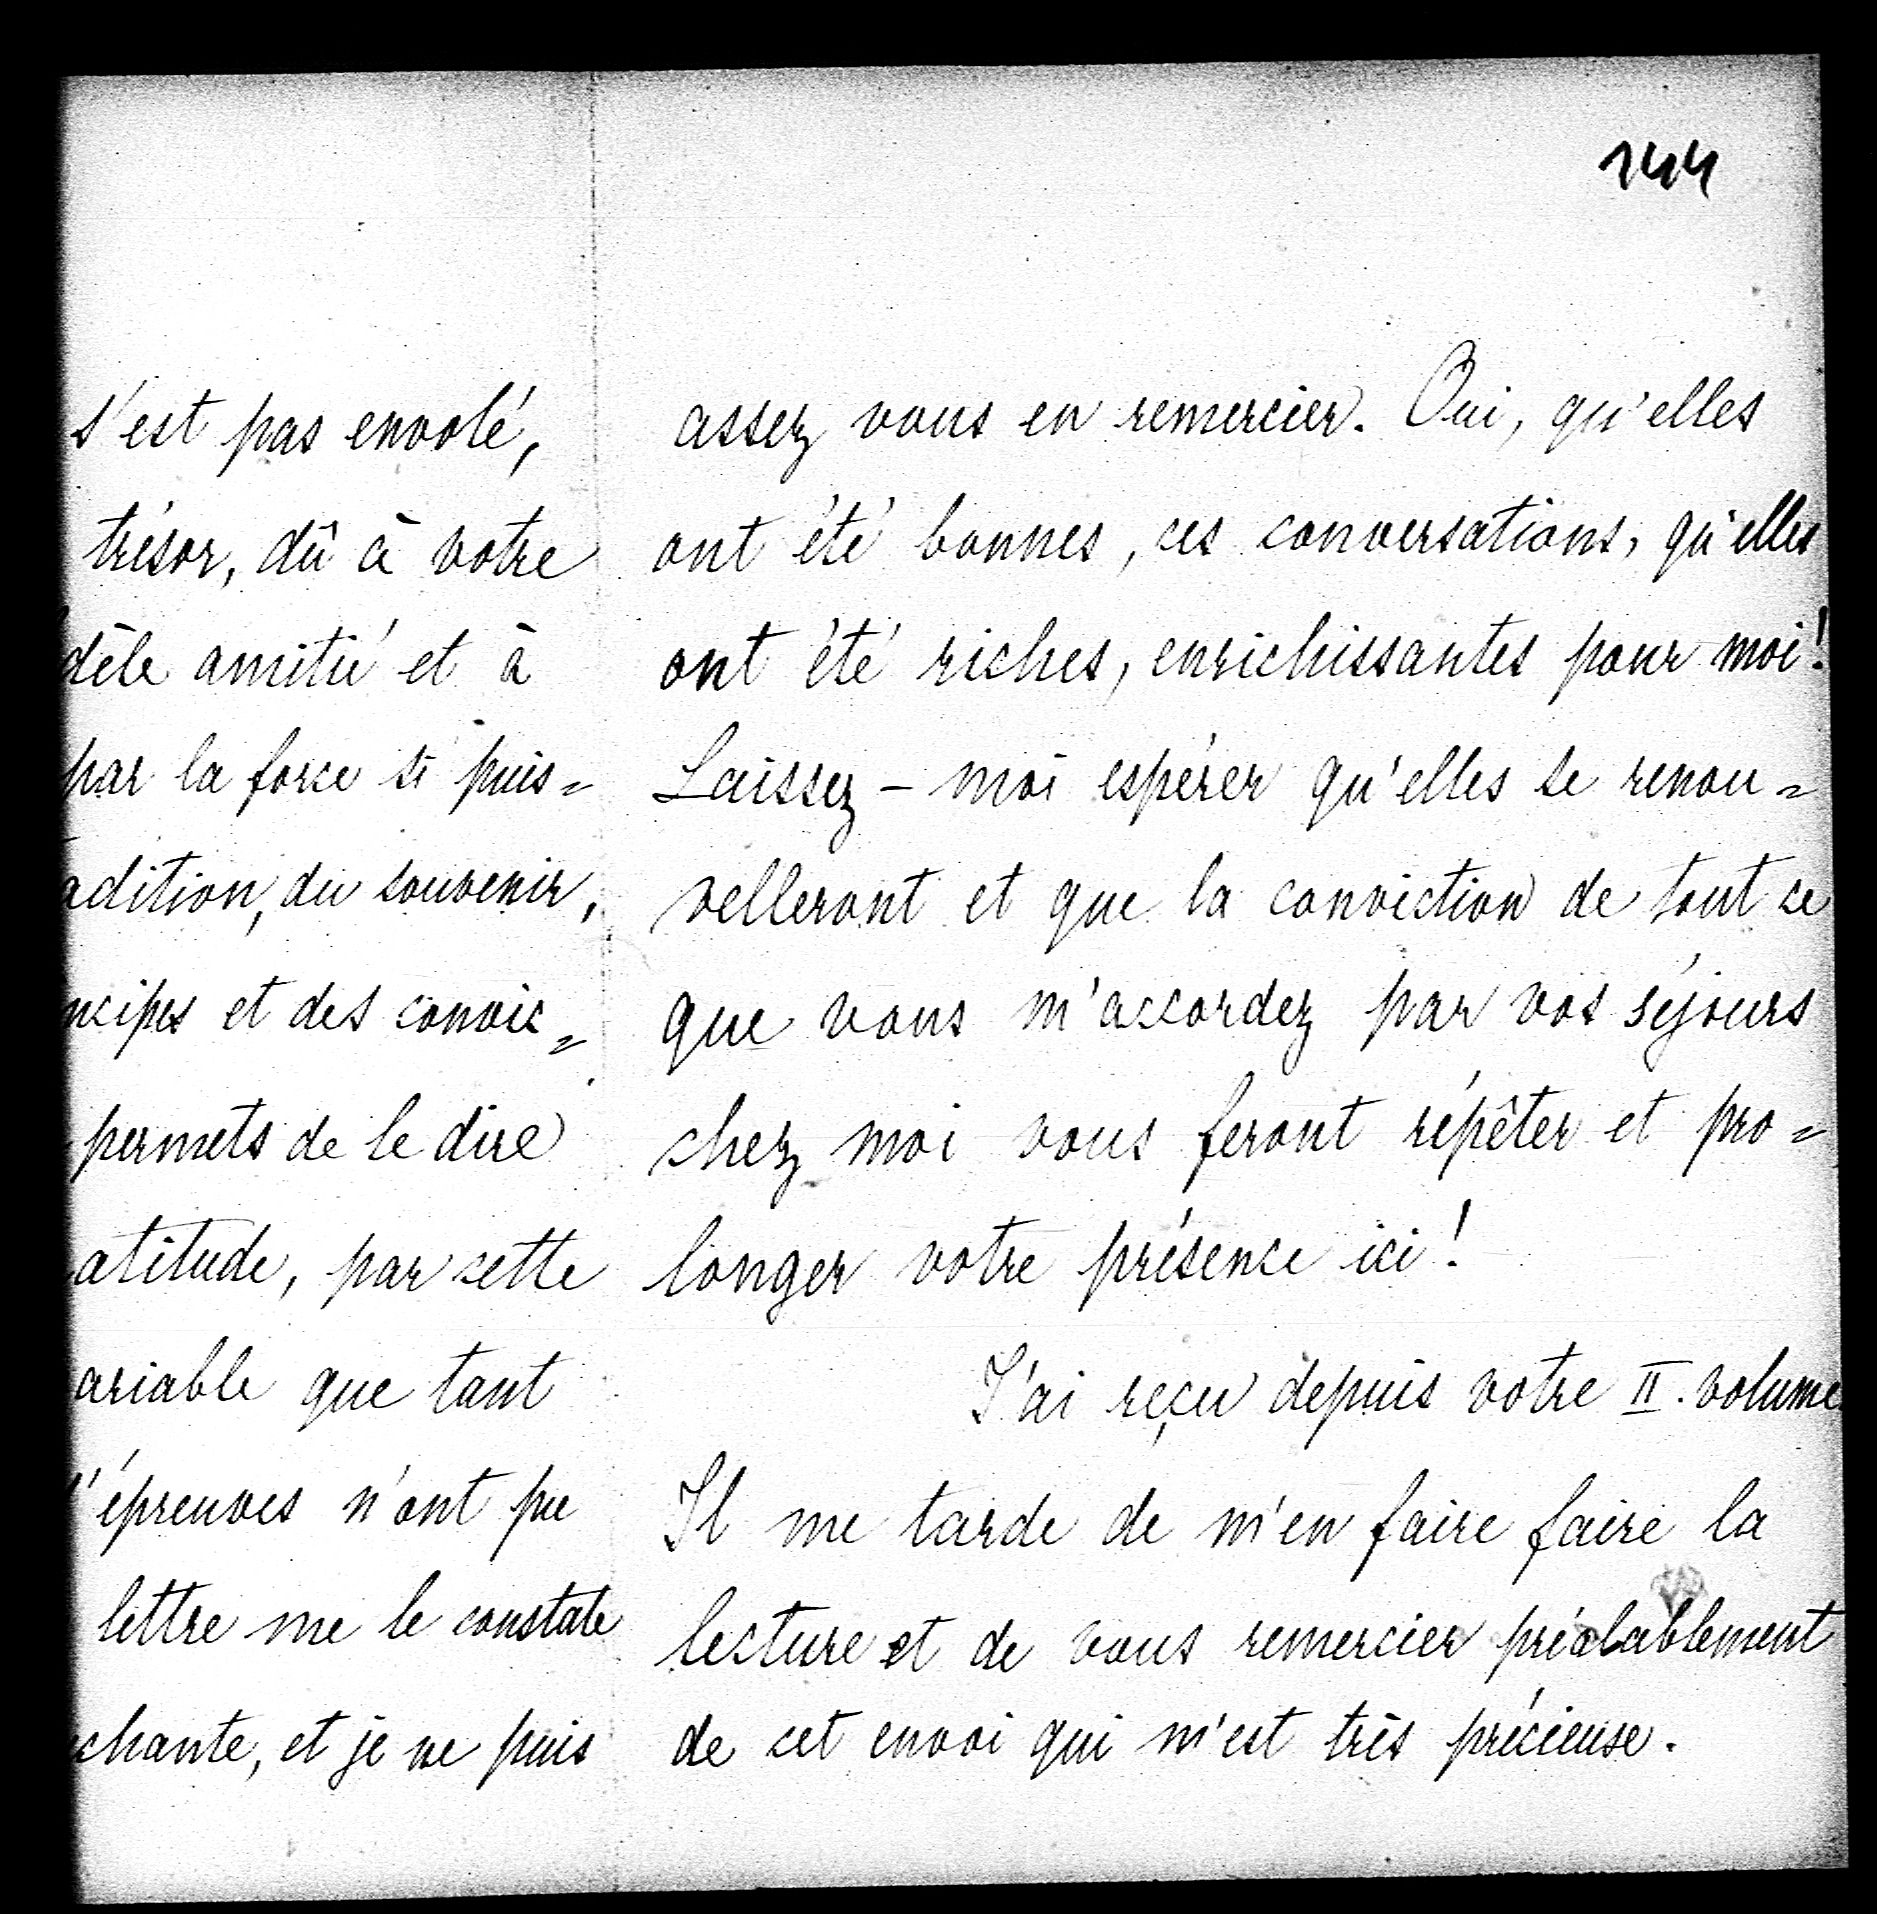 144
s'est pas envolé,
trésor, dû à votre
dèle amitié et à
par la force si puis=
adition, du souvenir,
ncipes et des convic=
permets de le dire
atitude, par cette
ariable que tant
d'épreuves n'ont pu
lettre me le constate
chante, et je ne puis
assez vous en remercier. Oui, qu'elles
ont été bonnes, ces conversations, qu'elles
ont été riches, enrichissantes pour moi!
Laissez-moi espérer qu'elles se renou=
velleront et que la conviction de tout ce
que vous m'accordez par vos séjours
chez moi vous feront répêter et pro=
longer votre présence ici!
J'ai reçu depuis votre II. volume.
Il me tarde de m'en faire faire la
lecture et de vous remercier préalablement
de cet envoi qui m'est très précieuse.